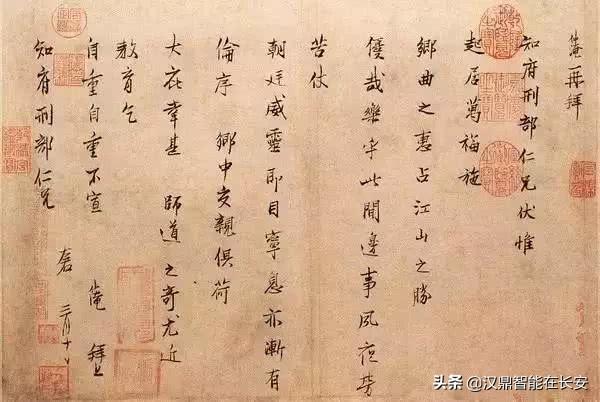 淹再拜
知府刑部仁兄伏惟
起居萬福施
鄉曲之惠占江山之勝
優哉樂乎此間邊事夙夜勞
苦仗
朝廷威靈即目寧息亦漸有
倫序鄉中交親俱荷
大庇幸甚 師道之奇尤近
教育乞
自重自重不宣 淹 拜上
知府刑部仁兄
三月十
头条 @汉鼎智能在长安